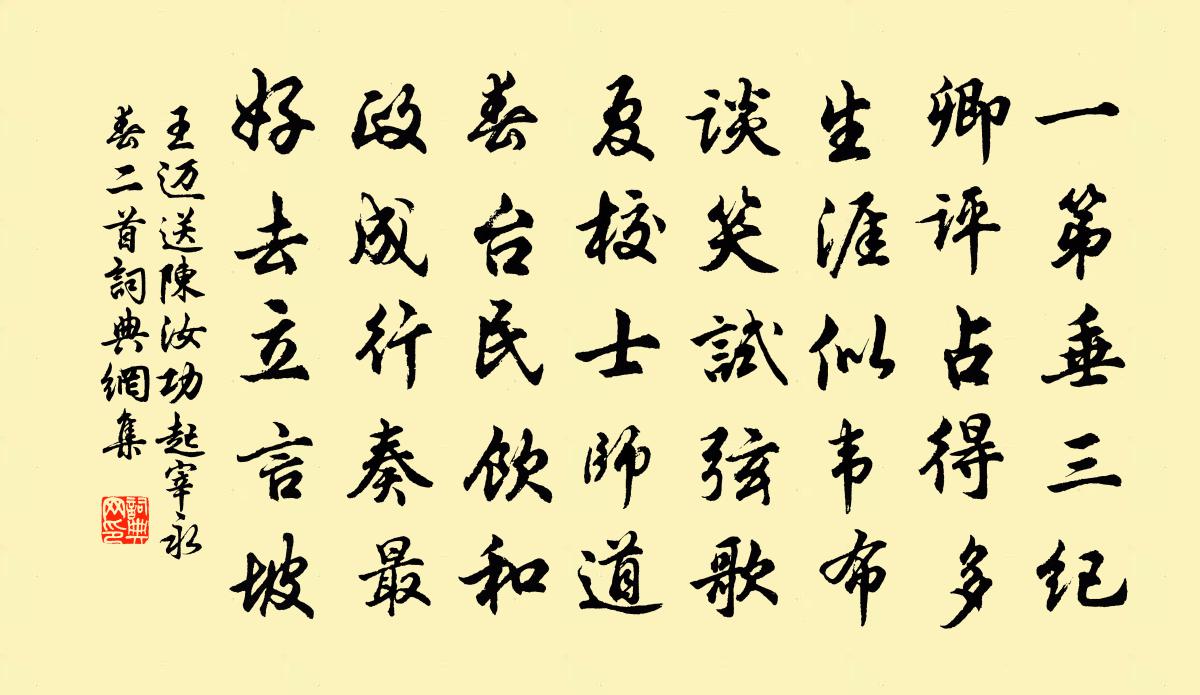 一第垂三纪
卿评占得多
生涯似韦布
谈笑試弦歌
夏校士師道
春台民飲和
政成行奏最
好去立言坡
王迈送陳汝功起宰永
春二首詞典網集
詞典
网印